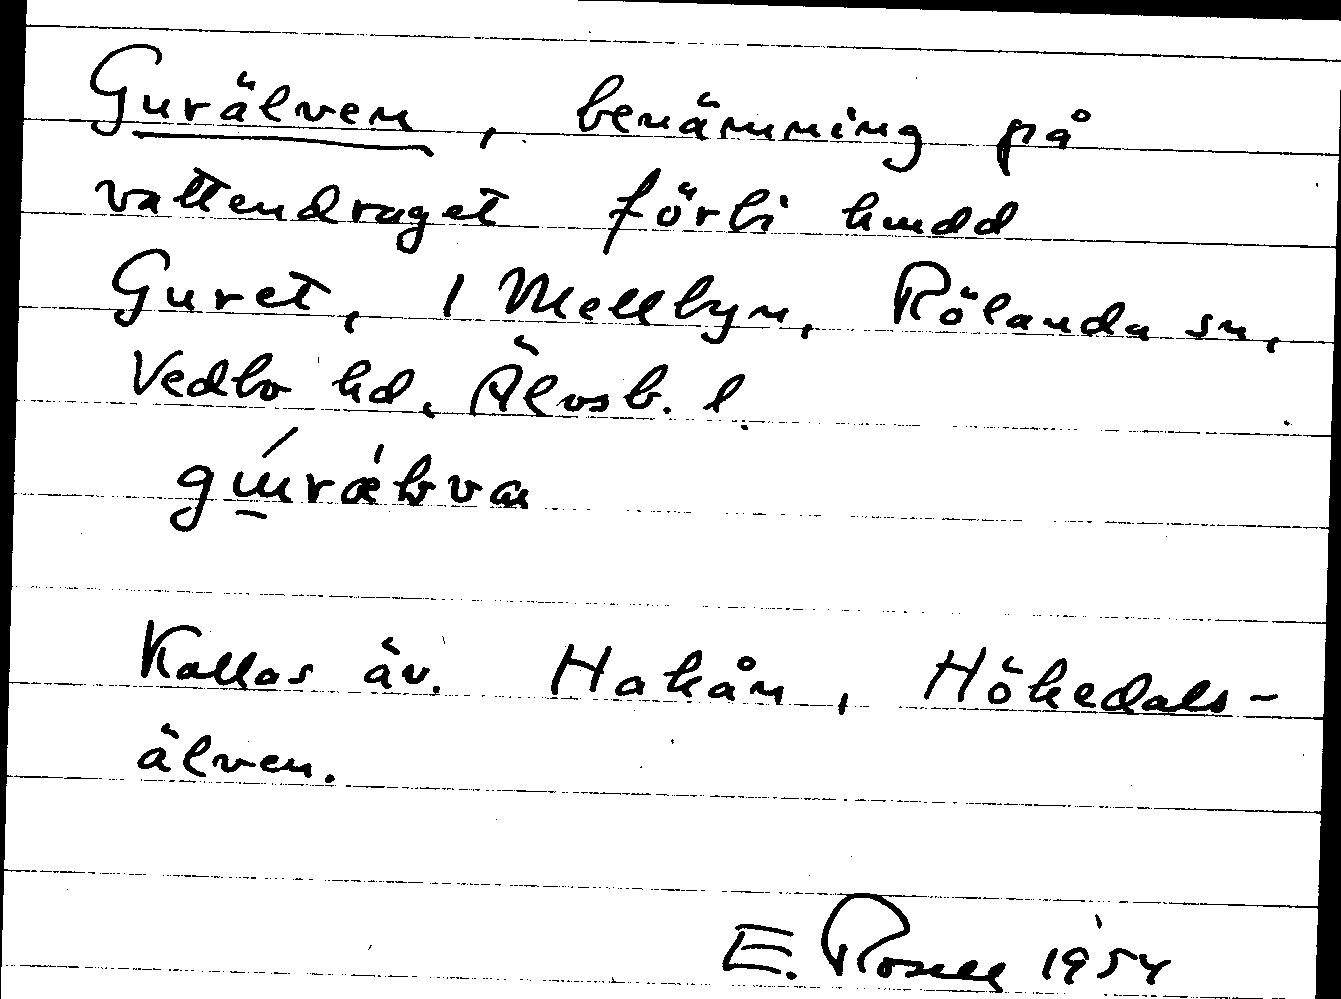 Gurälven, benämning på
vattendraget förbi hmdd
Guret, 1 Mellbyn, Rölanda sn,
Vedbo hd. Älvsb. l.
Kallas äv. Hakån, Hökedals-
älven.
E. Rosell 1954